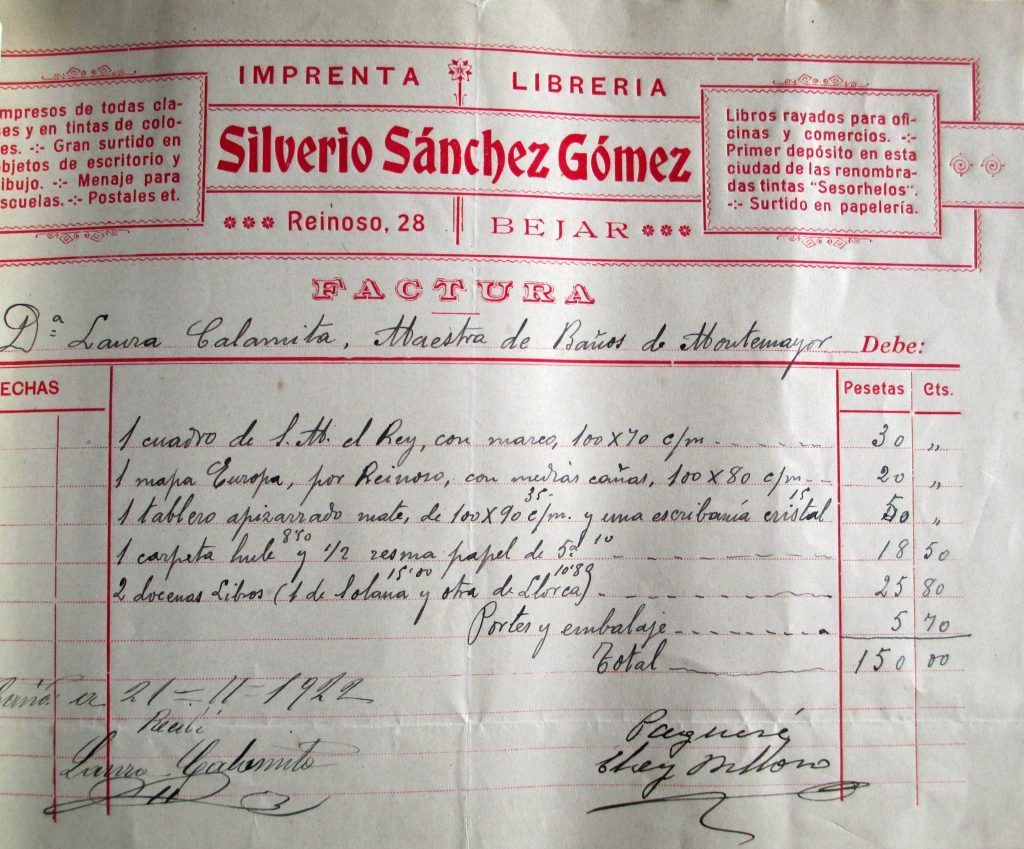 IMPRENTA LIBRERIA
mpresos de todas cla-
ses y en tintas de colo-
es. -:- Gran surtido en
objetos de escritorio y
ibujo. -:- Menaje para
scuelas. -:- Postales et.
Silverio Sánchez Gómez
Libros rayados para ofi-
cinas y comercios. -:-
Primer depósito en esta
ciudad de las renombra-
das tintas "Sesorhelos".
-:- Surtido en papelería.
Reinoso, 28 BEJAR
FACTURA
Dª Laura Calamita, Maestra de Baños de Montemayor Debe:
ECHAS Pesetas Cts.
1 cuadro de S. M. el Rey, con marco, 100 x 70 c/m 30 "
1 mapa Europa, por Reinoso, con medias cañas, 100 x 80 c/m 20 "
35- 15
1 tablero apizarrado mate, de 100 x 90 c/m. y una escribanía cristal 50 "
8'50 10
1 carpeta hule y 1/2 resma papel de 5ª 18 50
15'00 10'80
2 docenas Libros (1 de Solana y otra de Llorca) 25 80
Portes y embalaje 5 70
Total 150 00
a 21 - 11 - 1922
Recibí
Laura Calamita
Páguese